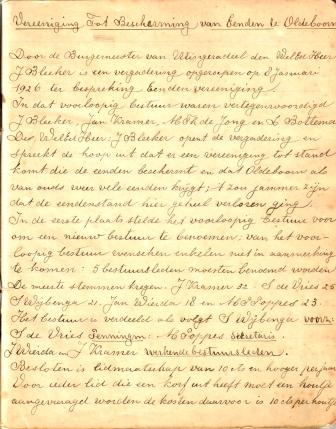 Vereeniging Tot Bescherming van Eenden te Oldeboorn
Door de Burgemeester van Utingeradeel den WelEd. Heer
J Bleeker is een vergadering opgeroepen op 8 Januari
1926 ter bespreking Eendenvereeniging.
In dat voorloopig bestuur waren vertegenwoordigd
J Bleeker, Jan Kramer de Jong en Bottema
De WelEd. Heer J Bleeker opent de vergadering en
spreekt de hoop uit dat er een vereniging tot stand
komt die de eenden beschermt en dat Oldeboorn als
van ouds weer vele eenden krijgt; 't zou jammer zijn
dat de eendenstand hier geheel verloren ging.
In de eerste plaats stelde het voorloopig bestuur voor
om een nieuw bestuur te benoemen; van het voor-
loopig bestuur wenschen enkelen niet in aanmerking
te komen: 5 bestuursleden moesten benoemd worden
De meeste stemmen kregen. J Kramer 32 - S de Vries 25
S Wybenga 21. Jan Wierda 18 en Poppes 23.
Het bestuur is verdeeld als volgt S Wybenga voorz.
S de Vries Penningm. Poppes Secretaris.
J Wierda en J Kramer werkende bestuursleden.
Besloten is lidmaatschap van 10 cts en hooger per jaar
Voor ieder lid die een korf uit heeft moet een houtje
aangevraagd worden de kosten daarvoor is 10 cts per houtje